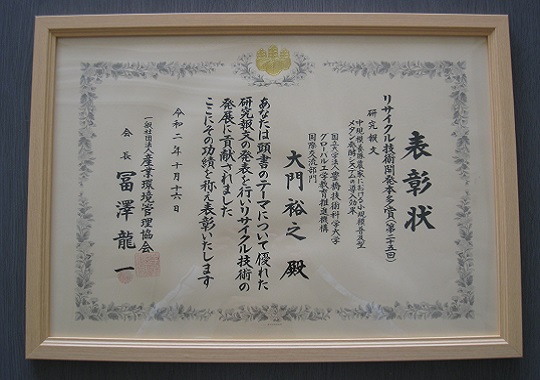 表彰状
リサイクル技術開発本多賞(第二十五回)
研究報文
中規模養豚農家における小規模普及型
メタン発酵システムの導入効果
国立大学法人豊橋技術科学大学
グローバル工学教育推進機構
国際交流部門
大門裕之 殿
あなたは頭書のテーマについて優れた
研究報文の発表を行いリサイクル技術の
発展に貢献されました
ここにその功績を称え表彰いたします
令和二年十月十六日
一般社団法人産業環境管理協会
会長 冨澤龍一